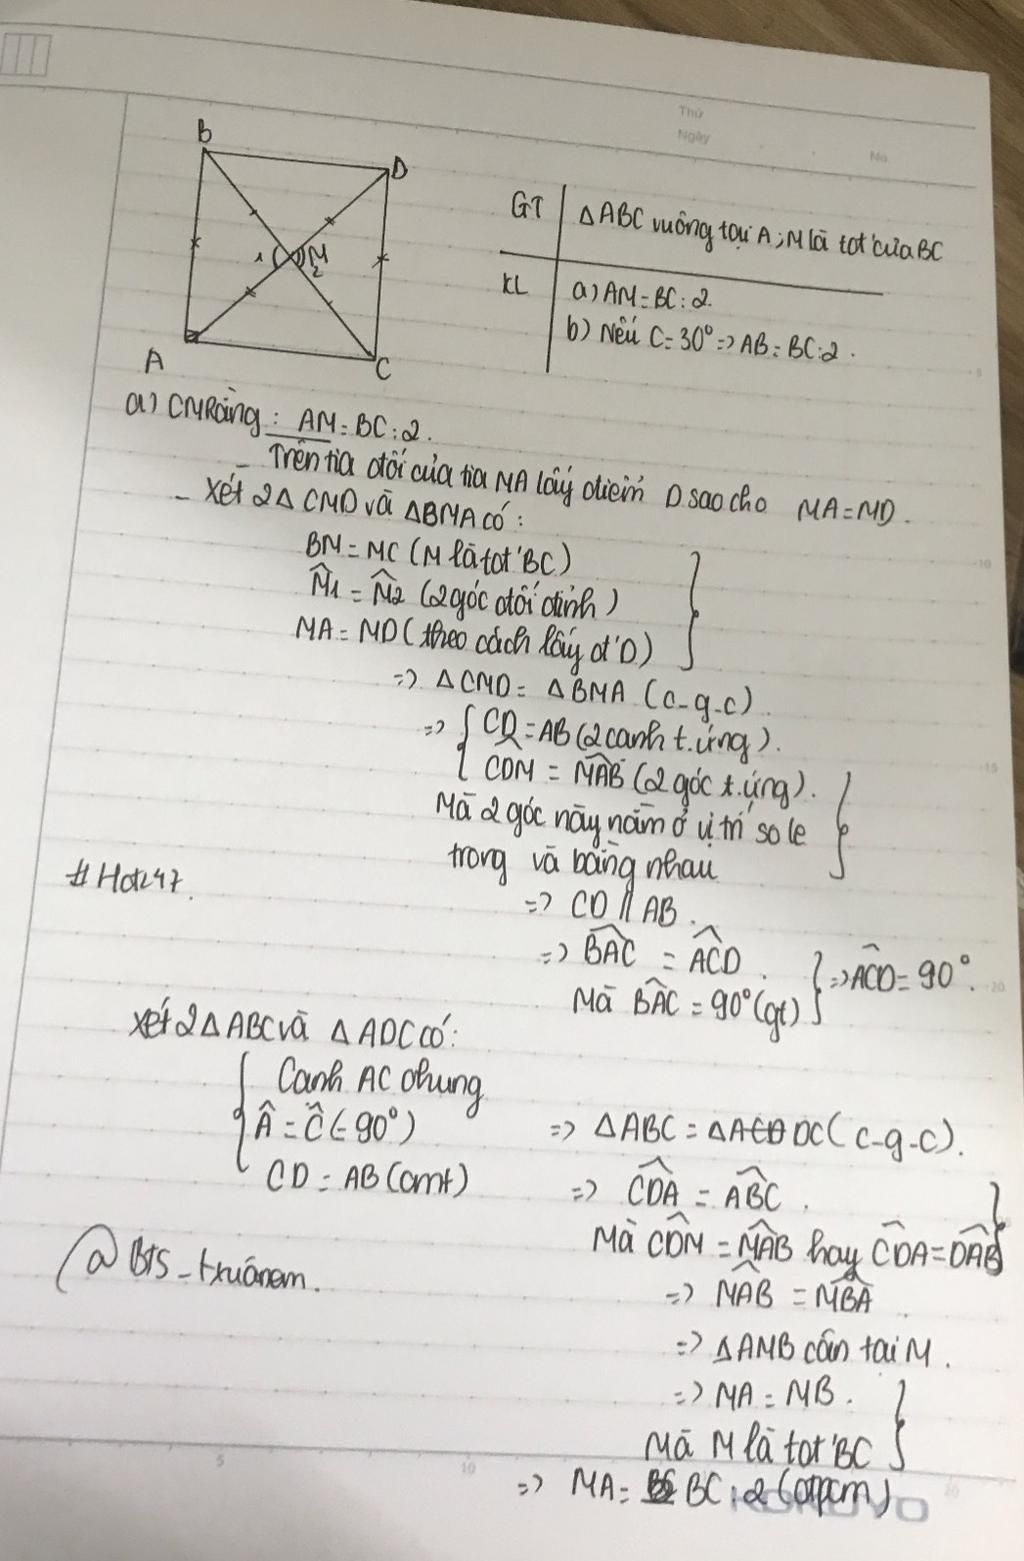 Thứ
Ngày
No
B
D
1
M
2
A
C
GT
ΔABC vuông tại A; M là tđ' của BC
KL
a) AM = BC : 2.
b) Nếu C = 30° => AB = BC : 2.
a) CMRằng: AM = BC : 2.
- Trên tia đối của tia MA lấy điểm D sao cho MA = MD.
- Xét 2Δ CMD và ΔBMA có:
BM = MC (M là tđ' BC)
M̂1 = M̂2 (2 góc đối đỉnh)
MA = MD (theo cách lấy đ' D)
=> ΔCMD = ΔBMA (c-g-c).
=> { CD = AB (2 cạnh t.ứng).
CDM = MAB (2 góc t.ứng).
Mà 2 góc này nằm ở vị trí so le
trong và bằng nhau
#Hot247.
=> CD // AB.
=> BAC = ACD.
Mà BAC = 90° (gt)
} => ACD = 90°.
Xét 2Δ ABC và Δ ADC có:
Cạnh AC chung
Â = Ĉ (= 90°)
CD = AB (cmt)
=> ΔABC = ΔADC (c-g-c).
=> CDA = ABC.
Mà CDM = MAB hay CDA = DAB
@BTS_txuânem.
=> MAB = MBA
=> ΔAMB cân tại M.
=> MA = MB.
Mà M là tđ' BC
=> MA = BC : 2 (đpcm)
5
10
15
20
5
10
20